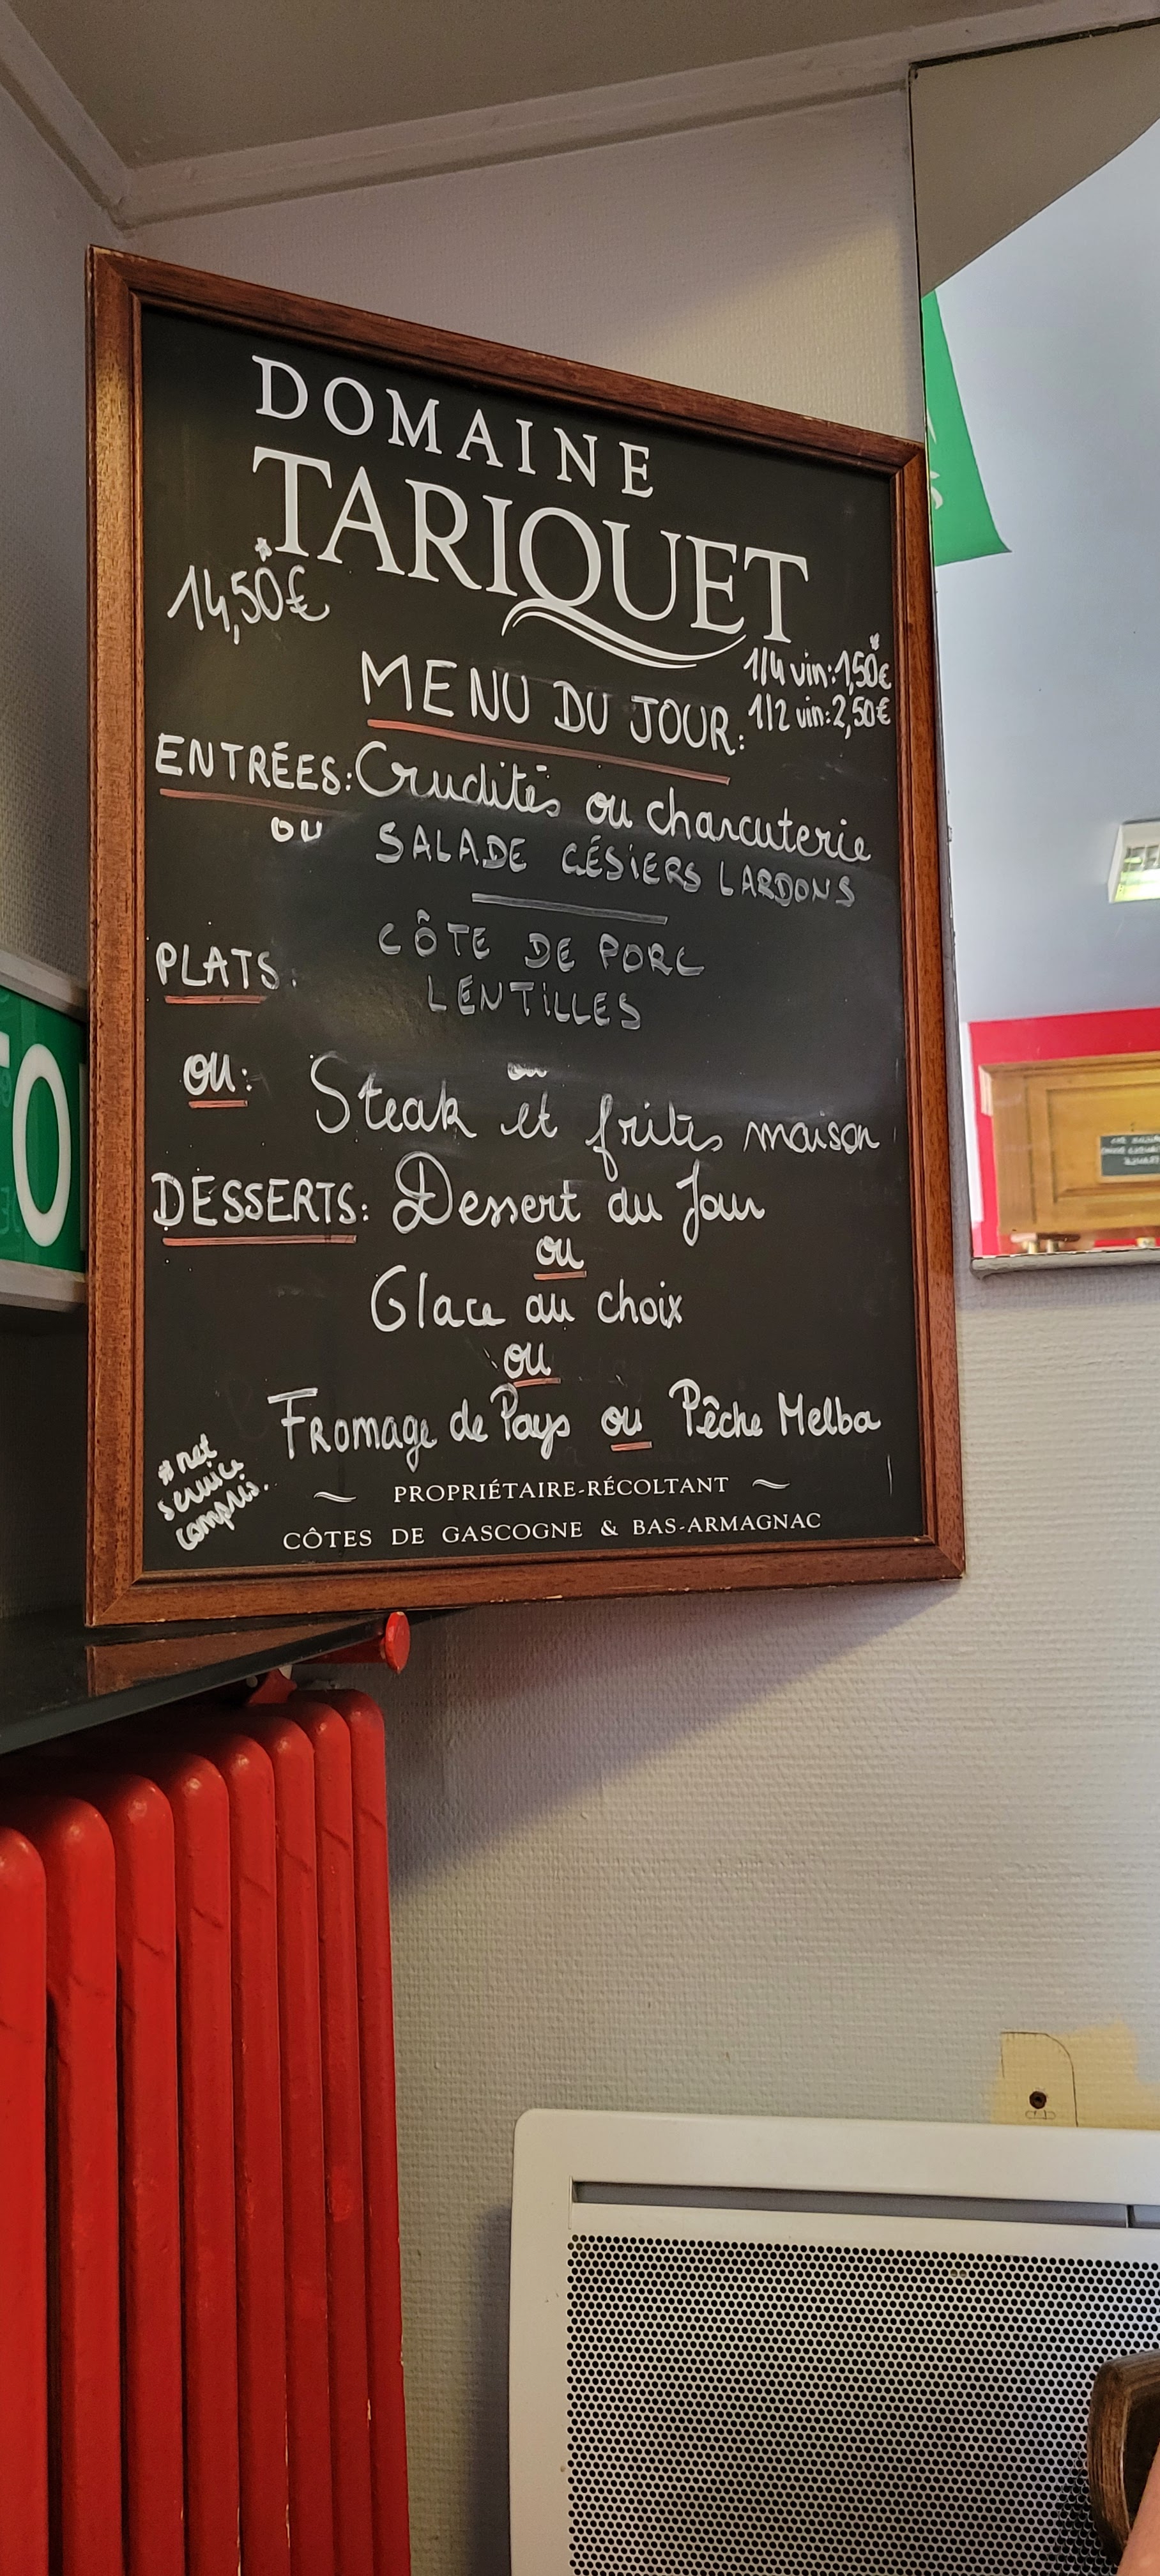 DOMAINE
TARIQUET
14,50€*
MENU DU JOUR:
1/4 vin: 1,50€*
1/2 vin: 2,50€
ENTRÉES: Crudités ou charcuterie
ou SALADE GÉSIERS LARDONS
PLATS: CÔTE DE PORC
LENTILLES
ou
ou: Steak et frites maison
DESSERTS: Dessert du Jour
ou
Glace au choix
ou
Fromage de Pays ou Pêche Melba
* net
service
compris.
PROPRIÉTAIRE-RÉCOLTANT
CÔTES DE GASCOGNE & BAS-ARMAGNAC
TO